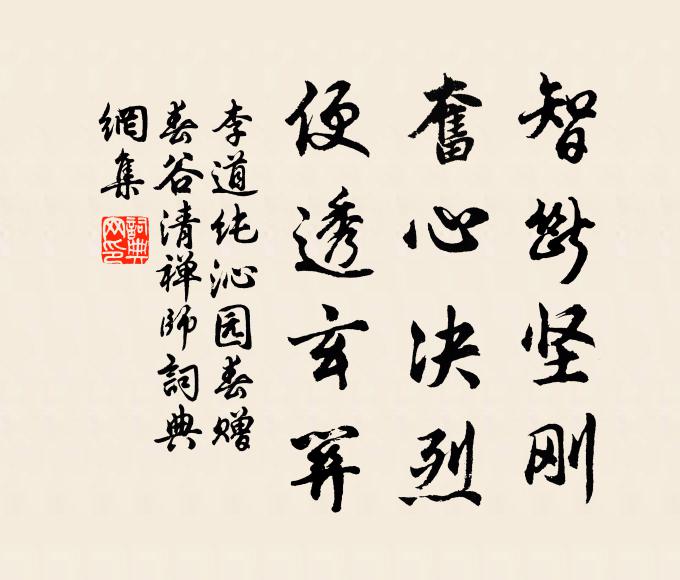 智斷坚刚
奮心决烈
便透玄關
李道纯沁园春赠
春谷清禅师詞典
網集
詞典
网印